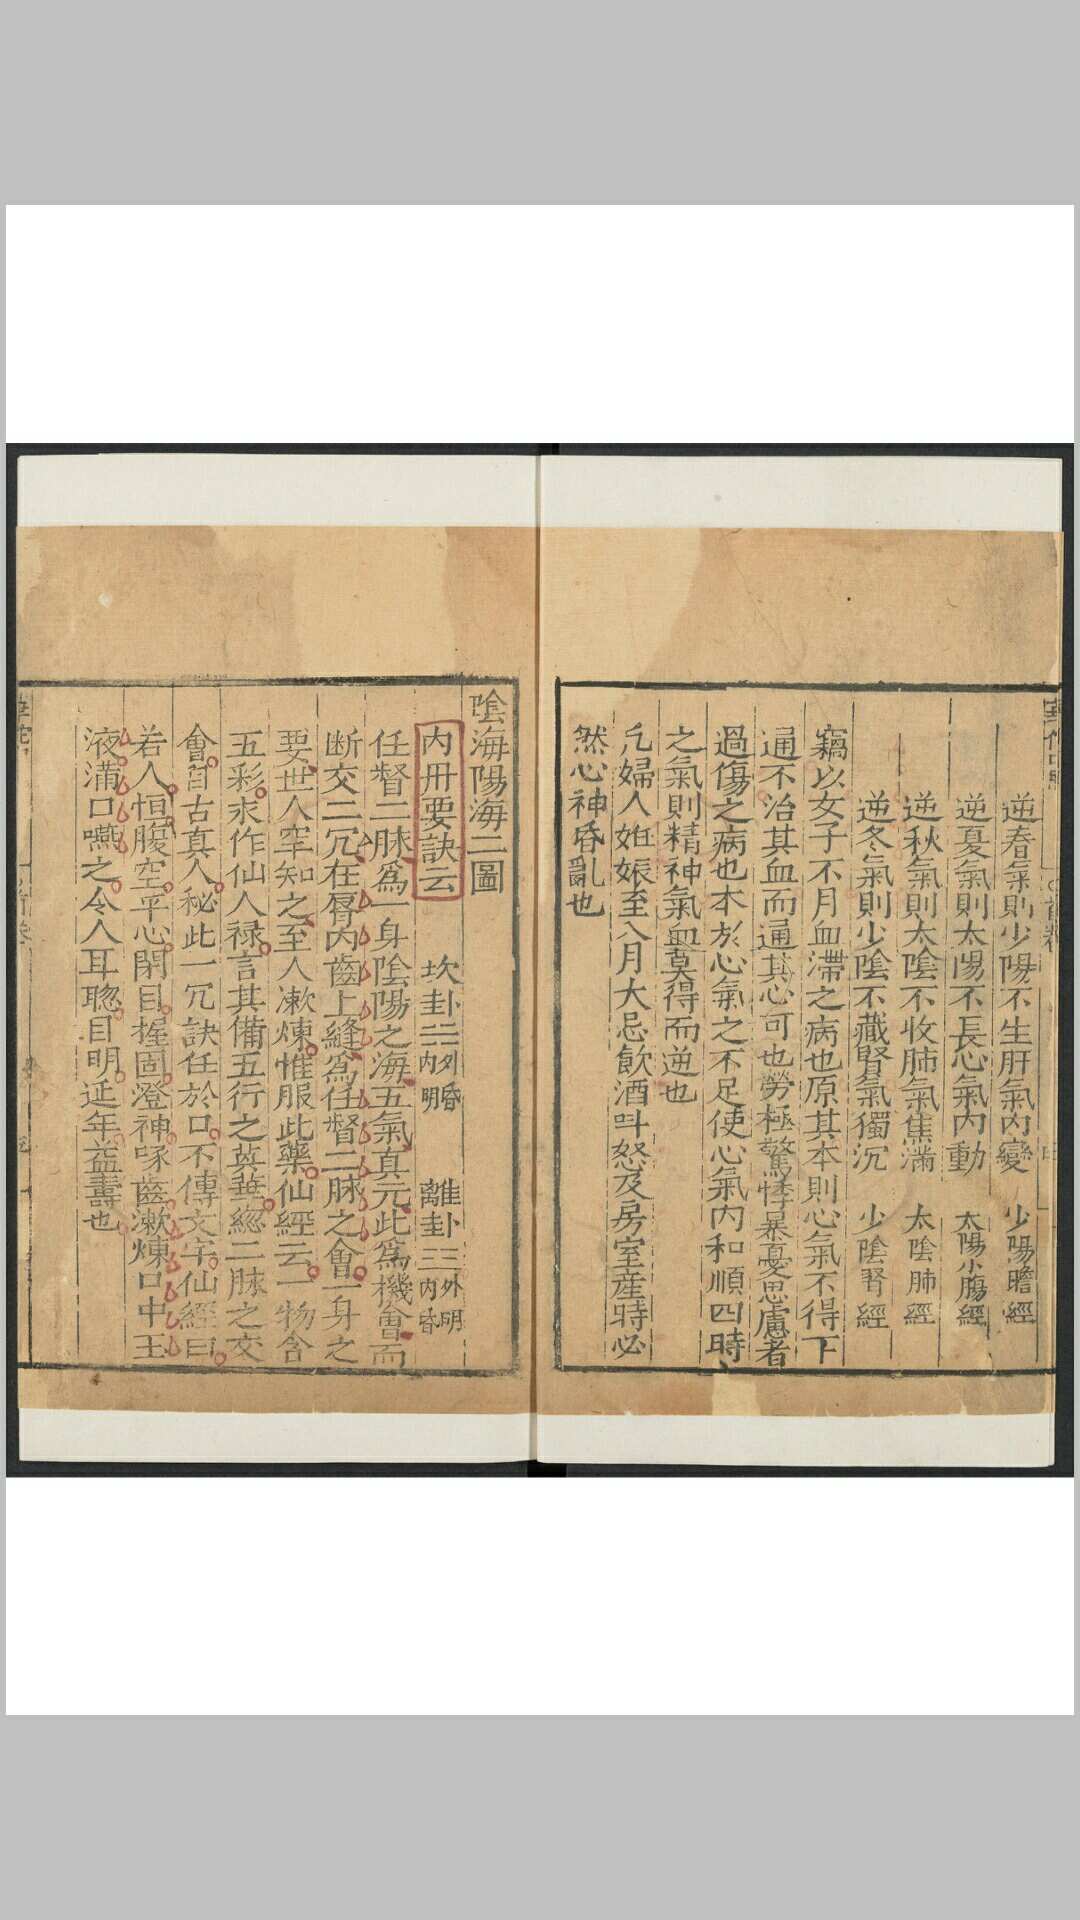 逆春氣則少陽不生肝氣內變　少陽膽經
逆夏氣則太陽不長心氣內動　太陽小腸經
逆秋氣則太陰不收肺氣焦滿　太陰肺經
逆冬氣則少陰不藏腎氣獨沉　少陰腎經
竊以女子不月血滯之病也原其本則心氣不得下
通不治其血而通其心可也勞極驚悸暴憂思慮者
過傷之病也本於心氣之不足使心氣內和順四時
之氣則精神氣血莫得而逆也
凡婦人姙娠至八月大忌飲酒呌怒及房室產時必
然心神昏亂也
陰海陽海二圖
內丹要訣云　坎卦☵外昏內明　離卦☲外明內昏
任督二脉為一身陰陽之海五氣真元此為機會而
断交二穴在唇內齒上縫為任督二脉之會一身之
要世人罕知之至人漱煉惟服此藥仙經云一物含
五彩永作仙人禄言其備五行之英華緫二脉之交
會自古真人秘此一穴訣任於口不傳文字仙經曰
若人恒腹空平心閉目握固澄神啄齒漱煉口中玉
液滿口嚥之令人耳聦目明延年益壽也